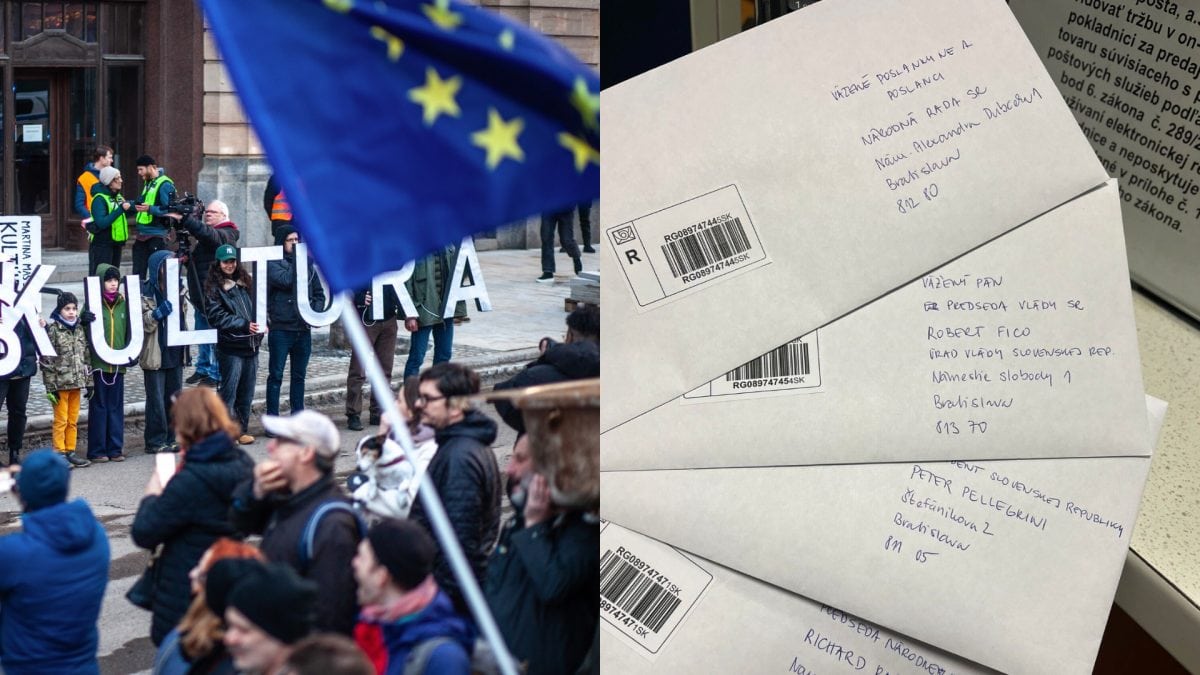 MARTINA
KULTURA
VÁŽENÉ POSLANKYNE A
POSLANCI
NÁRODNÁ RADA SR
Nám. Alexandra Dubčeka 1
Bratislava
812 80
R
RG089747445SK
RG089747445SK
VÁŽENÝ PÁN
PREDSEDA VLÁDY SR
ROBERT FICO
ÚRAD VLÁDY SLOVENSKEJ REP.
Námestie slobody 1
Bratislava
813 70
RG089747454SK
SLOVENSKEJ REPUBLIKY
PETER PELLEGRINI
Štefánikova 2
Bratislava
811 05
RG089747471SK
RG089747471SK
PREDSEDA NÁRODNEJ
RICHARD
pošta, a.
tržbu v on-
pokladnici za predaj
tovaru súvisiaceho s
poštových služieb podľa
bod 6. zákona č. 289/2
elektronickej re
a neposkytuje
v prílohe č.
zákona.